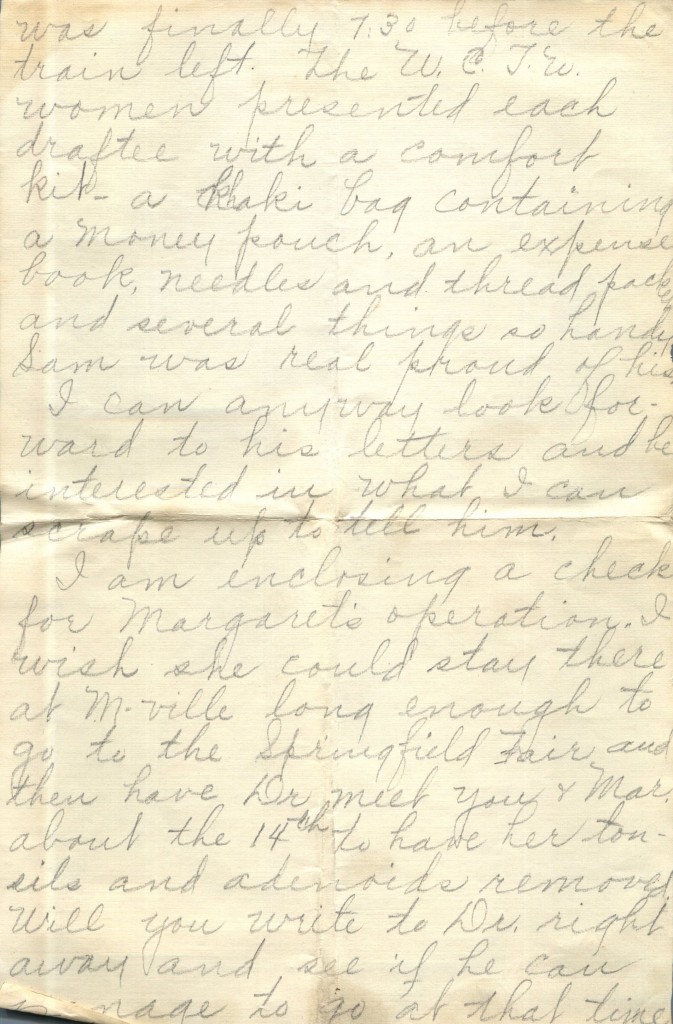 was finally 7:30 before the
train left. The W. C. T. U.
women presented each
draftee with a comfort
kit - a khaki bag containing
a money pouch, an expense
book, needles and thread packed
and several things so handy
Sam was real proud of his.
I can anyway look for-
ward to his letters and be
interested in what I can
scrape up to tell him.
I am enclosing a check
for Margaret's operation. I
wish she could stay there
at M-ville long enough to
go to the Springfield Fair and
then have Dr meet you & Mar.
about the 14th to have her ton-
sils and adenoids removed.
Will you write to Dr. right
away and see if he can
manage to go at that time